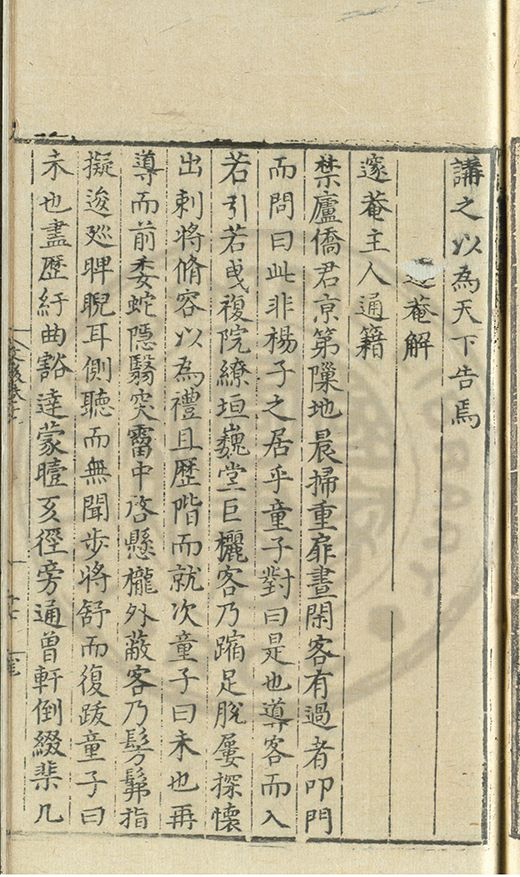 講之以為天下告焉
邃菴解
邃菴主人通籍
禁廬僑君京第隟地晨掃重扉晝閑客有過者叩門
而問曰此非楊子之居乎童子對曰是也導客而入
若引若曵複院繚垣巍堂巨欐客乃躧足脫屨探懷
出刺將脩容以為禮且歷階而就次童子曰未也再
導而前委蛇隱翳突窬中啓懸櫳外蔽客乃髣髴指
擬逡廵睥睨耳側聽而無聞步將舒而復跋童子曰
未也盡歷紆曲豁達蒙曀亥徑旁通曾軒倒綴棐几